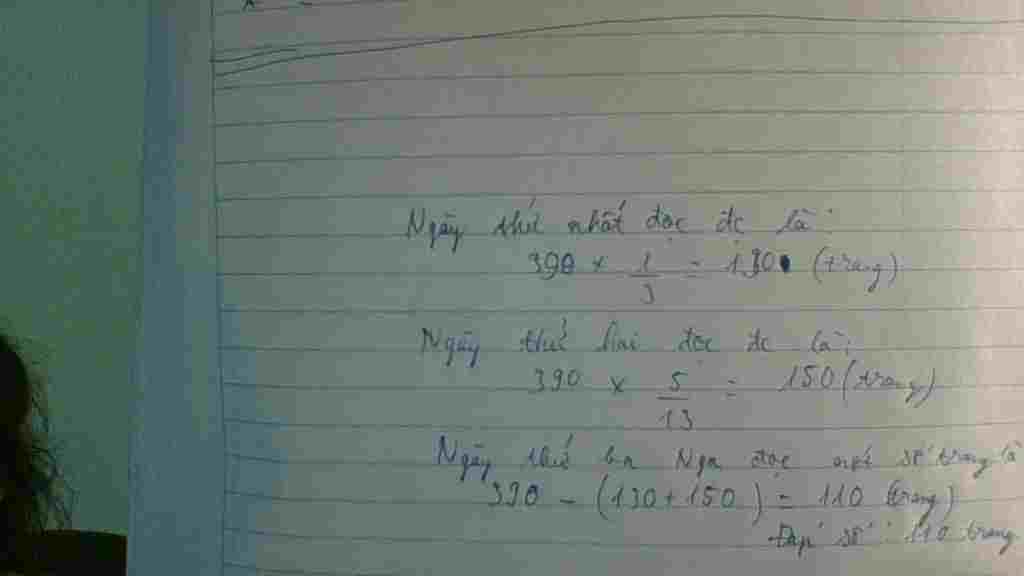 Ngày thứ nhất đọc đc là:
390 × 1/3 = 130 (trang)
Ngày thứ hai đọc đc là:
390 × 5/13 = 150 (trang)
Ngày thứ ba Nga đọc số trang là
390 - (130 + 150) = 110 (trang)
Đáp số: 110 trang